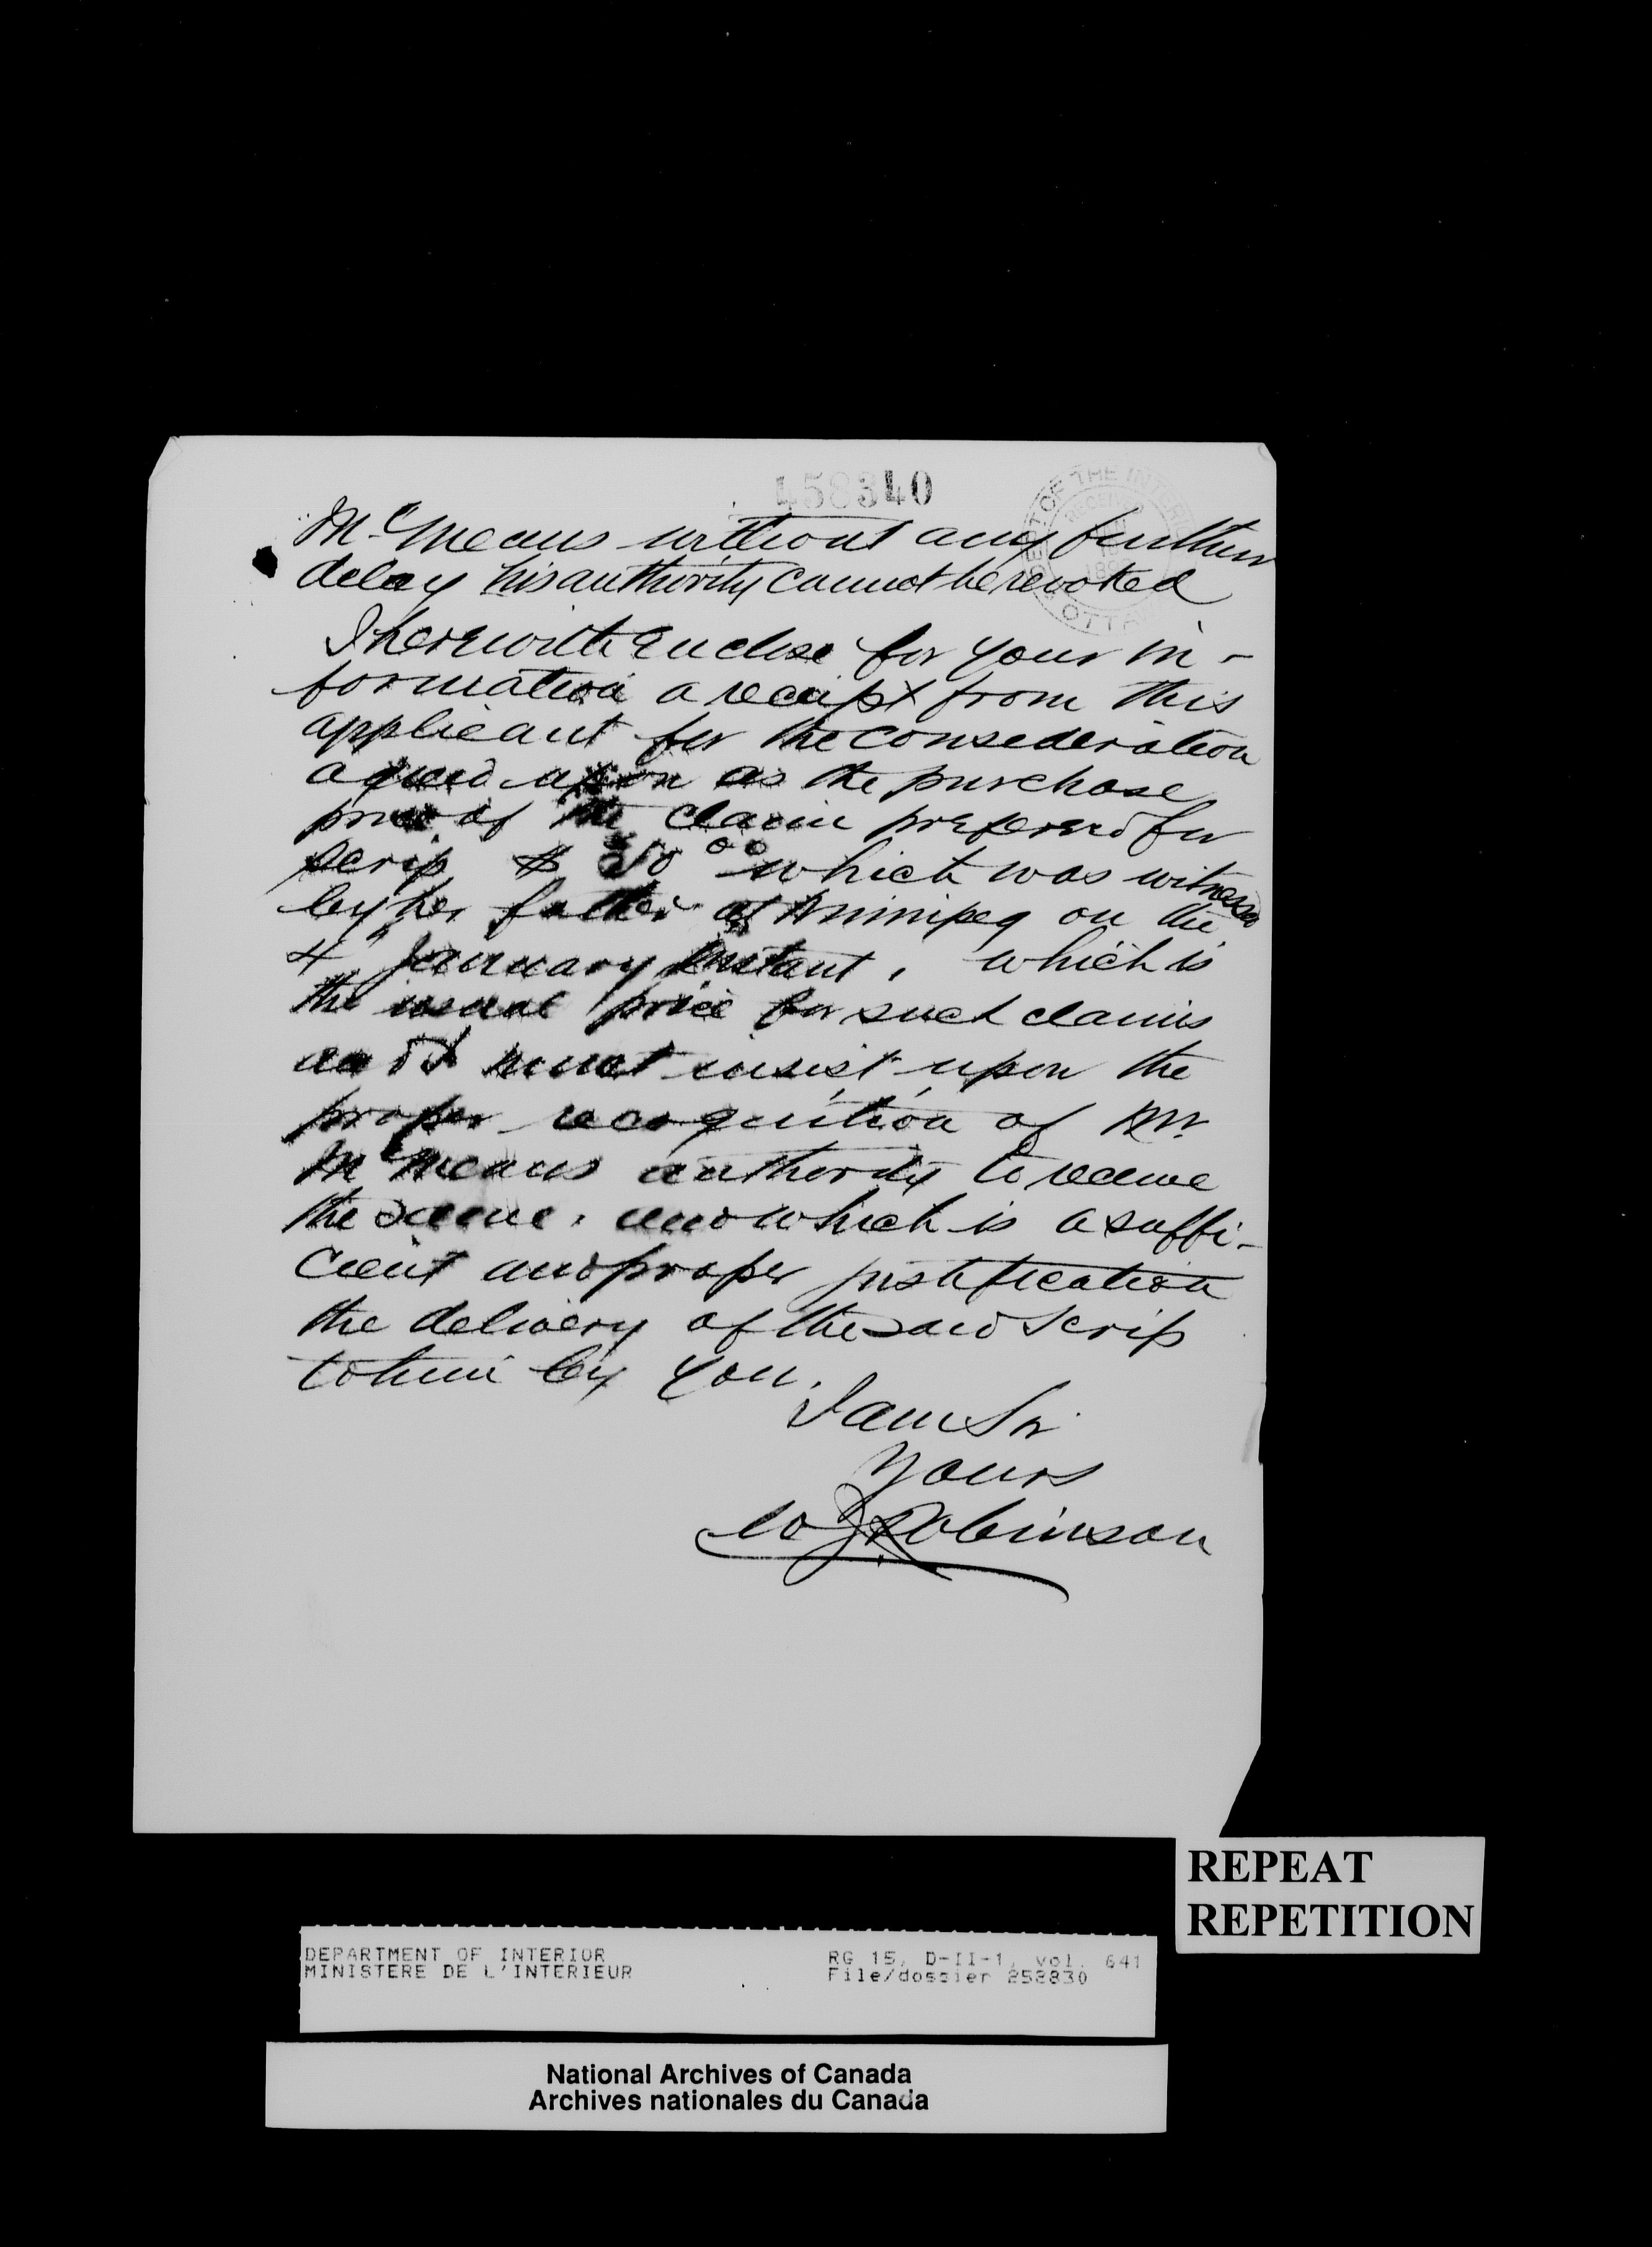 458340
DEPT OF THE INTERIOR
RECEIVED
OTTA
McMeans without any further
delay his authority cannot be revoked
I herewith Enclose for your in-
formation a receipt from this
applicant for the consederation
agreed upon as the purchase
price of the claim prefered for
scrip $ 00 which was witnessed
by her father at Winnipeg on the
4" January instant, which is
the usual price for such claims
and I must insist upon the
proper recognition of Mr.
McMeans authority to receive
the same, and which is a suffi-
cient and proper justification
the delivery of the said scrip
to him by you.
I am Sir
Yours
W J Robinson
REPEAT
REPETITION
DEPARTMENT OF INTERIOR
MINISTERE DE L'INTERIEUR
RG 15, D-II-1, vol. 641
File/dossier 258830
National Archives of Canada
Archives nationales du Canada